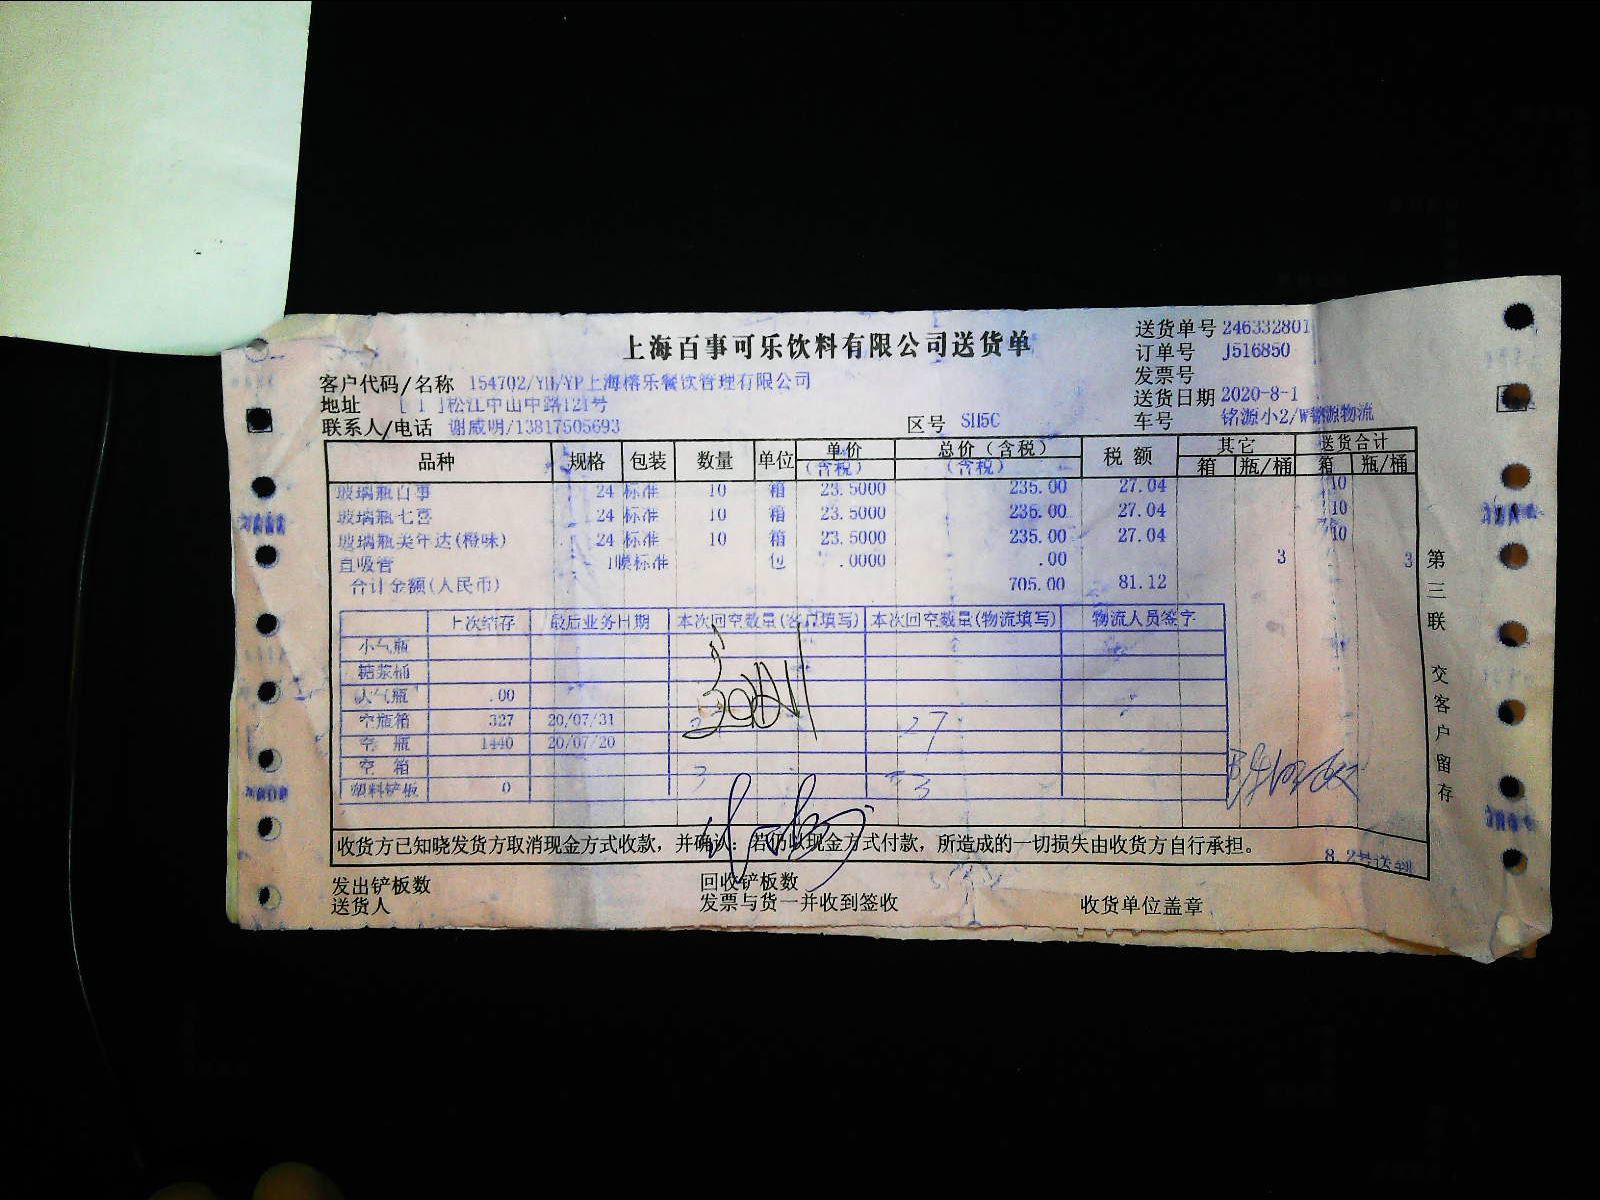 上海百事可乐饮料有限公司送货单
送货单号 246332801
订单号 J516850
发票号
送货日期 2020-8-1
车号 铭源小2/W铭源物流
客户代码/名称 154702/YH/YP上海榕乐餐饮管理有限公司
地址 [ 1 ]松江中山中路121号
联系人/电话 谢威明/13817505693
区号 SH5C
品种 规格 包装 数量 单位 单价(含税) 总价(含税) 税额 其它 送货合计
箱 瓶/桶 箱 瓶/桶
玻璃瓶百事 24 标准 10 箱 23.5000 235.00 27.04 10
玻璃瓶七喜 24 标准 10 箱 23.5000 235.00 27.04 10
玻璃瓶美年达(橙味) 24 标准 10 箱 23.5000 235.00 27.04 10
直吸管 1膜标准 包 .0000 .00 3 3
合计金额(人民币) 705.00 81.12
上次结存 最后业务日期 本次回空数量(客户填写) 本次回空数量(物流填写) 物流人员签字
小气瓶
糖浆桶
大气瓶 .00
空瓶箱 327 20/07/31 27
空 瓶 1440 20/07/20
空 箱 3 3
塑料铲板 0
收货方已知晓发货方取消现金方式收款，并确认：若仍以现金方式付款，所造成的一切损失由收货方自行承担。
8.2号送
发出铲板数 回收铲板数
送货人 发票与货一并收到签收 收货单位盖章
第三联 交客户留存